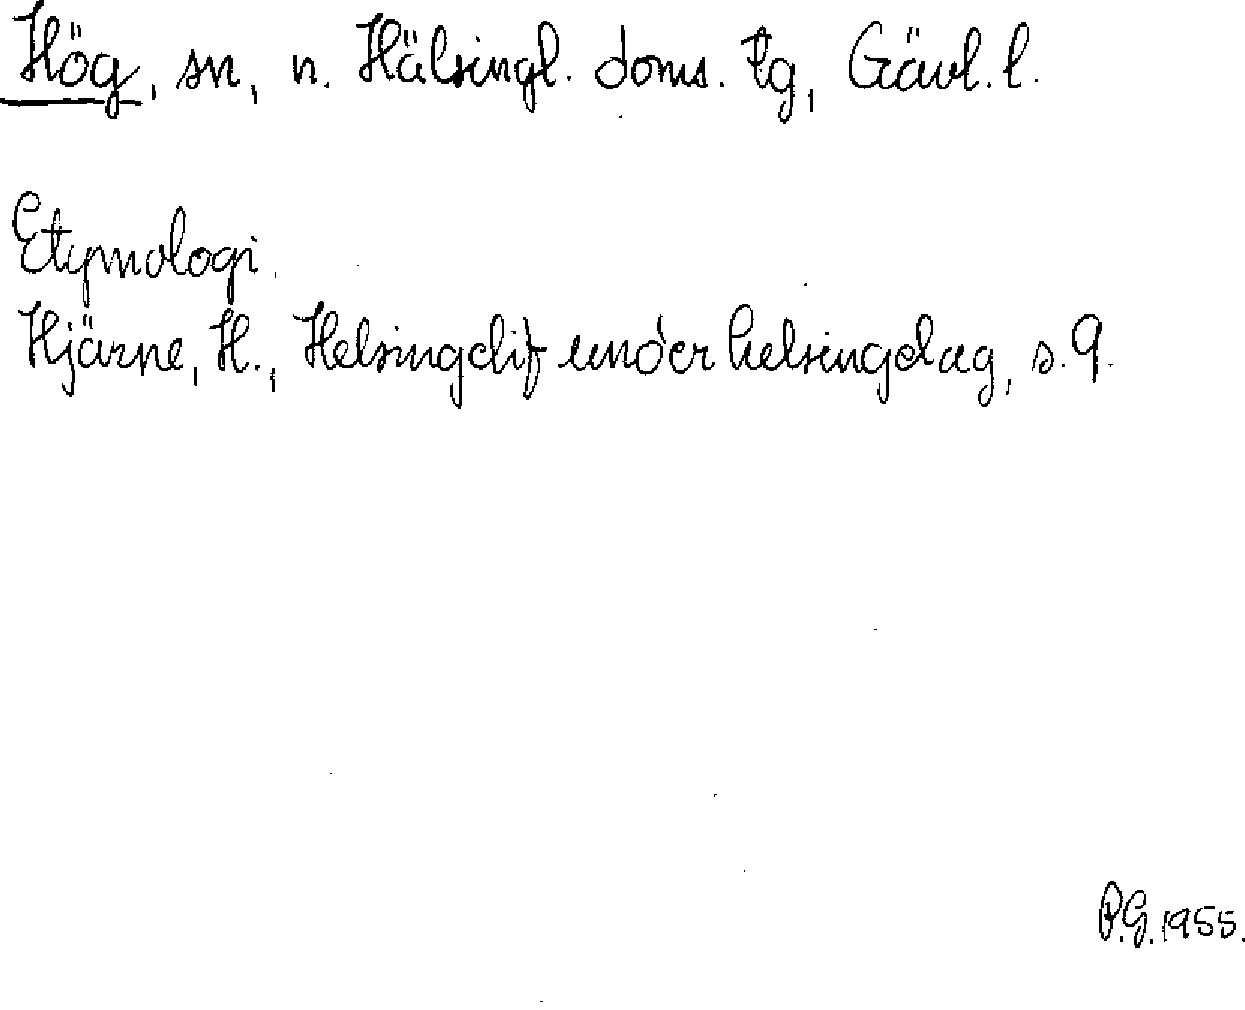 Hög, sn, n. Hälsingl. doms. tg, Gävl. l.
Etymologi.
Hjärne, H., Helsinglif under helsingelag, s. 9.
P.G. 1955.